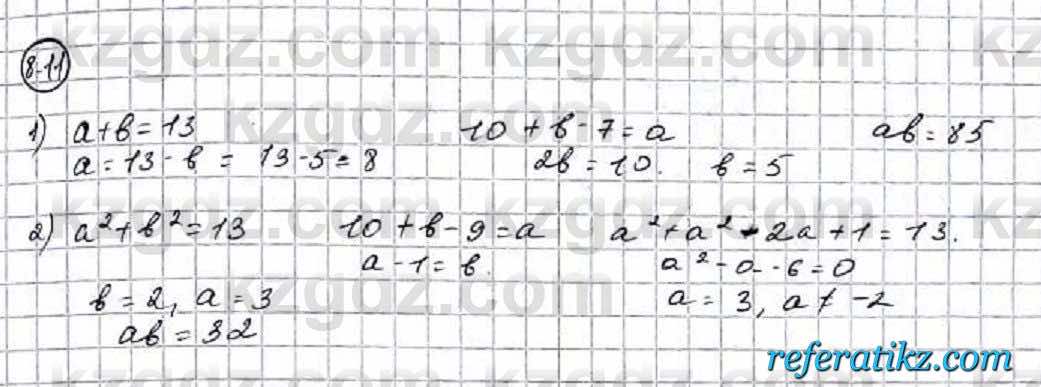 8.11
1) a+b=13 10+b-7=a ab=85
a=13-b = 13-5=8 2b=10. b=5
2) a²+b²=13 10+b-9=a a²+a²-2a+1=13.
a-1=b. a²-a-6=0
b=2, a=3 a=3, a≠-2
ab=32
kzgdz.com
referatikz.com